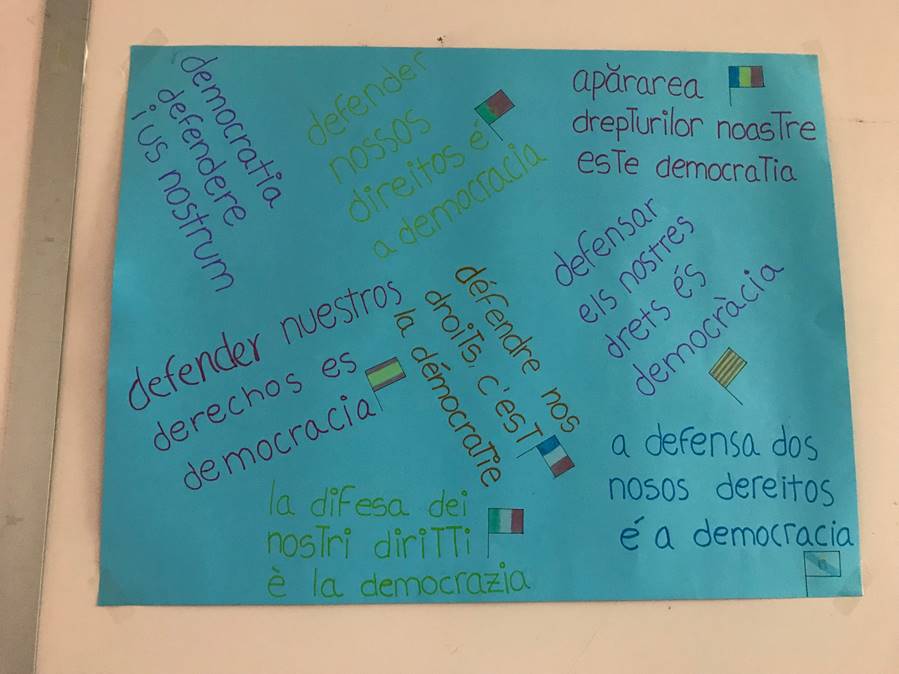 democratia
defendere
ius nostrum
defender
nossos
direitos e
a democracia
apărarea
drepturilor noastre
este democratia
defensar
els nostres
drets és
democràcia
defender nuestros
derechos es
democracia
défendre nos
droits, c'est
la démocratie
la difesa dei
nostri diritti
è la democrazia
a defensa dos
nosos dereitos
é a democracia